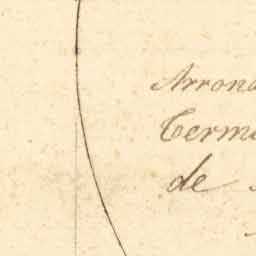 Arrond
Cerm
de